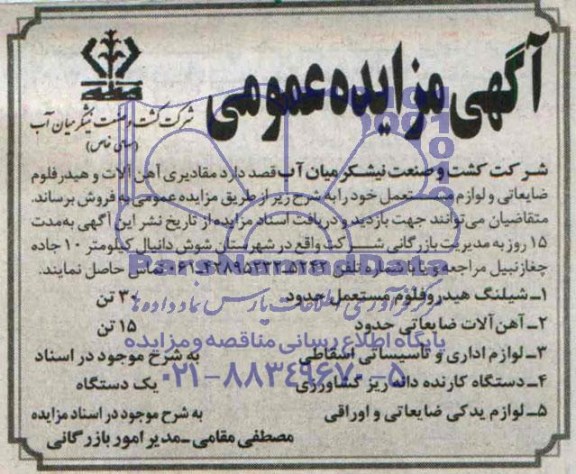 آگهی مزایده عمومی
شرکت کشت و صنعت نیشکر میان آب
(سهامی خاص)
شرکت کشت و صنعت نیشکر میان آب قصد دارد مقادیری آهن آلات و هیدرفلوم
ضایعاتی و لوازم مستعمل خود را به شرح زیر از طریق مزایده عمومی به فروش برساند.
متقاضیان می‌توانند جهت بازدید و دریافت اسناد مزایده از تاریخ نشر این آگهی به مدت
۱۵ روز به مدیریت بازرگانی شرکت واقع در شهرستان شوش دانیال کیلومتر ۱۰ جاده
چغازنبیل مراجعه و یا با شماره تلفن تماس حاصل نمایند.
۱ـ شیلنگ هیدروفلوم مستعمل حدود ۳۰ تن
۲ـ آهن آلات ضایعاتی حدود ۱۵ تن
۳ـ لوازم اداری و تاسیساتی اسقاطی به شرح موجود در اسناد
۴ـ دستگاه کارنده دانه ریز کشاورزی یک دستگاه
۵ـ لوازم یدکی ضایعاتی و اوراقی به شرح موجود در اسناد مزایده
مصطفی مقامی ـ مدیر امور بازرگانی
ParsNamadData
مرکز فرآوری اطلاعات پارس نماد داده ها
پایگاه اطلاع رسانی مناقصه و مزایده
۰۲۱-۸۸۳۴۹۶۷۰-۵